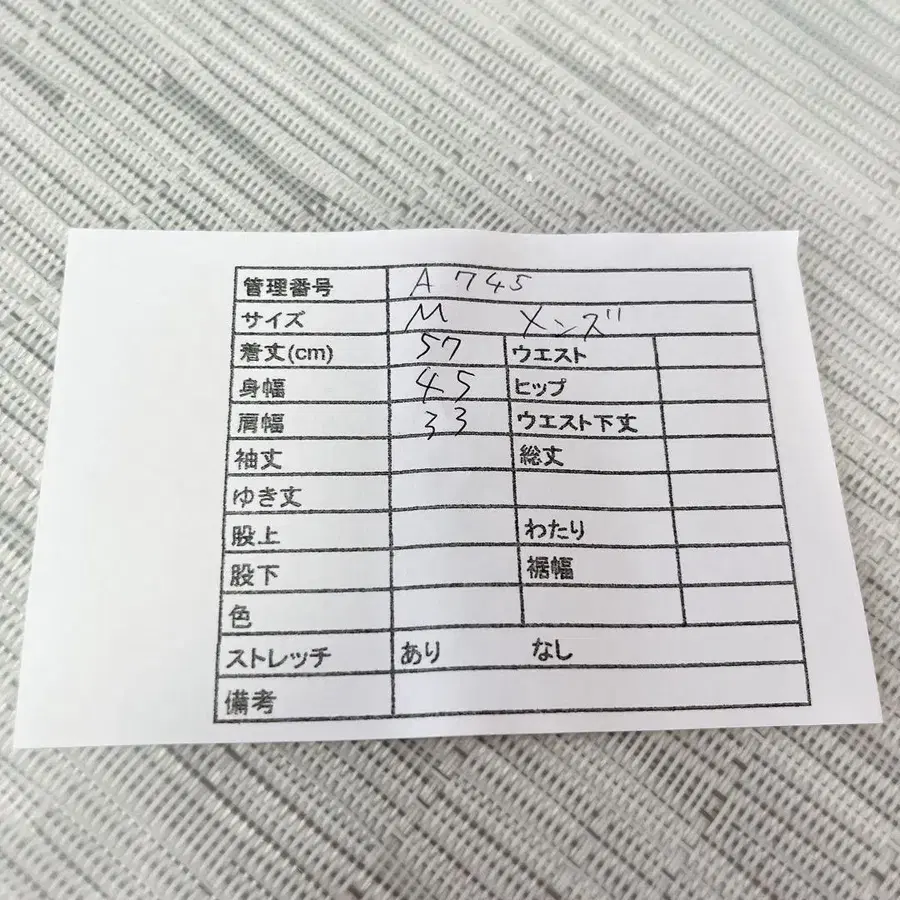 管理番号 A 745
サイズ M メンズ
着丈(cm) 57 ウエスト
身幅 45 ヒップ
肩幅 33 ウエスト下丈
袖丈 総丈
ゆき丈
股上 わたり
股下 裾幅
色
ストレッチ あり なし
備考